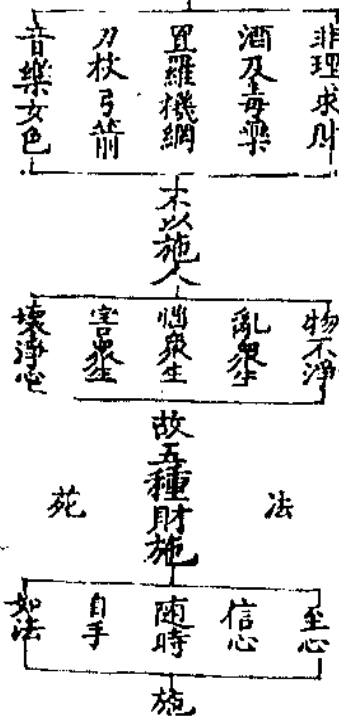 非理求財
酒及毒藥
罝羅機網
刀杖弓箭
音樂女色
不以施人
物不淨
亂衆生
惱衆生
害衆生
壞淨心
故五種財施
法
苑
至心
信心
随時
自手
如法
施